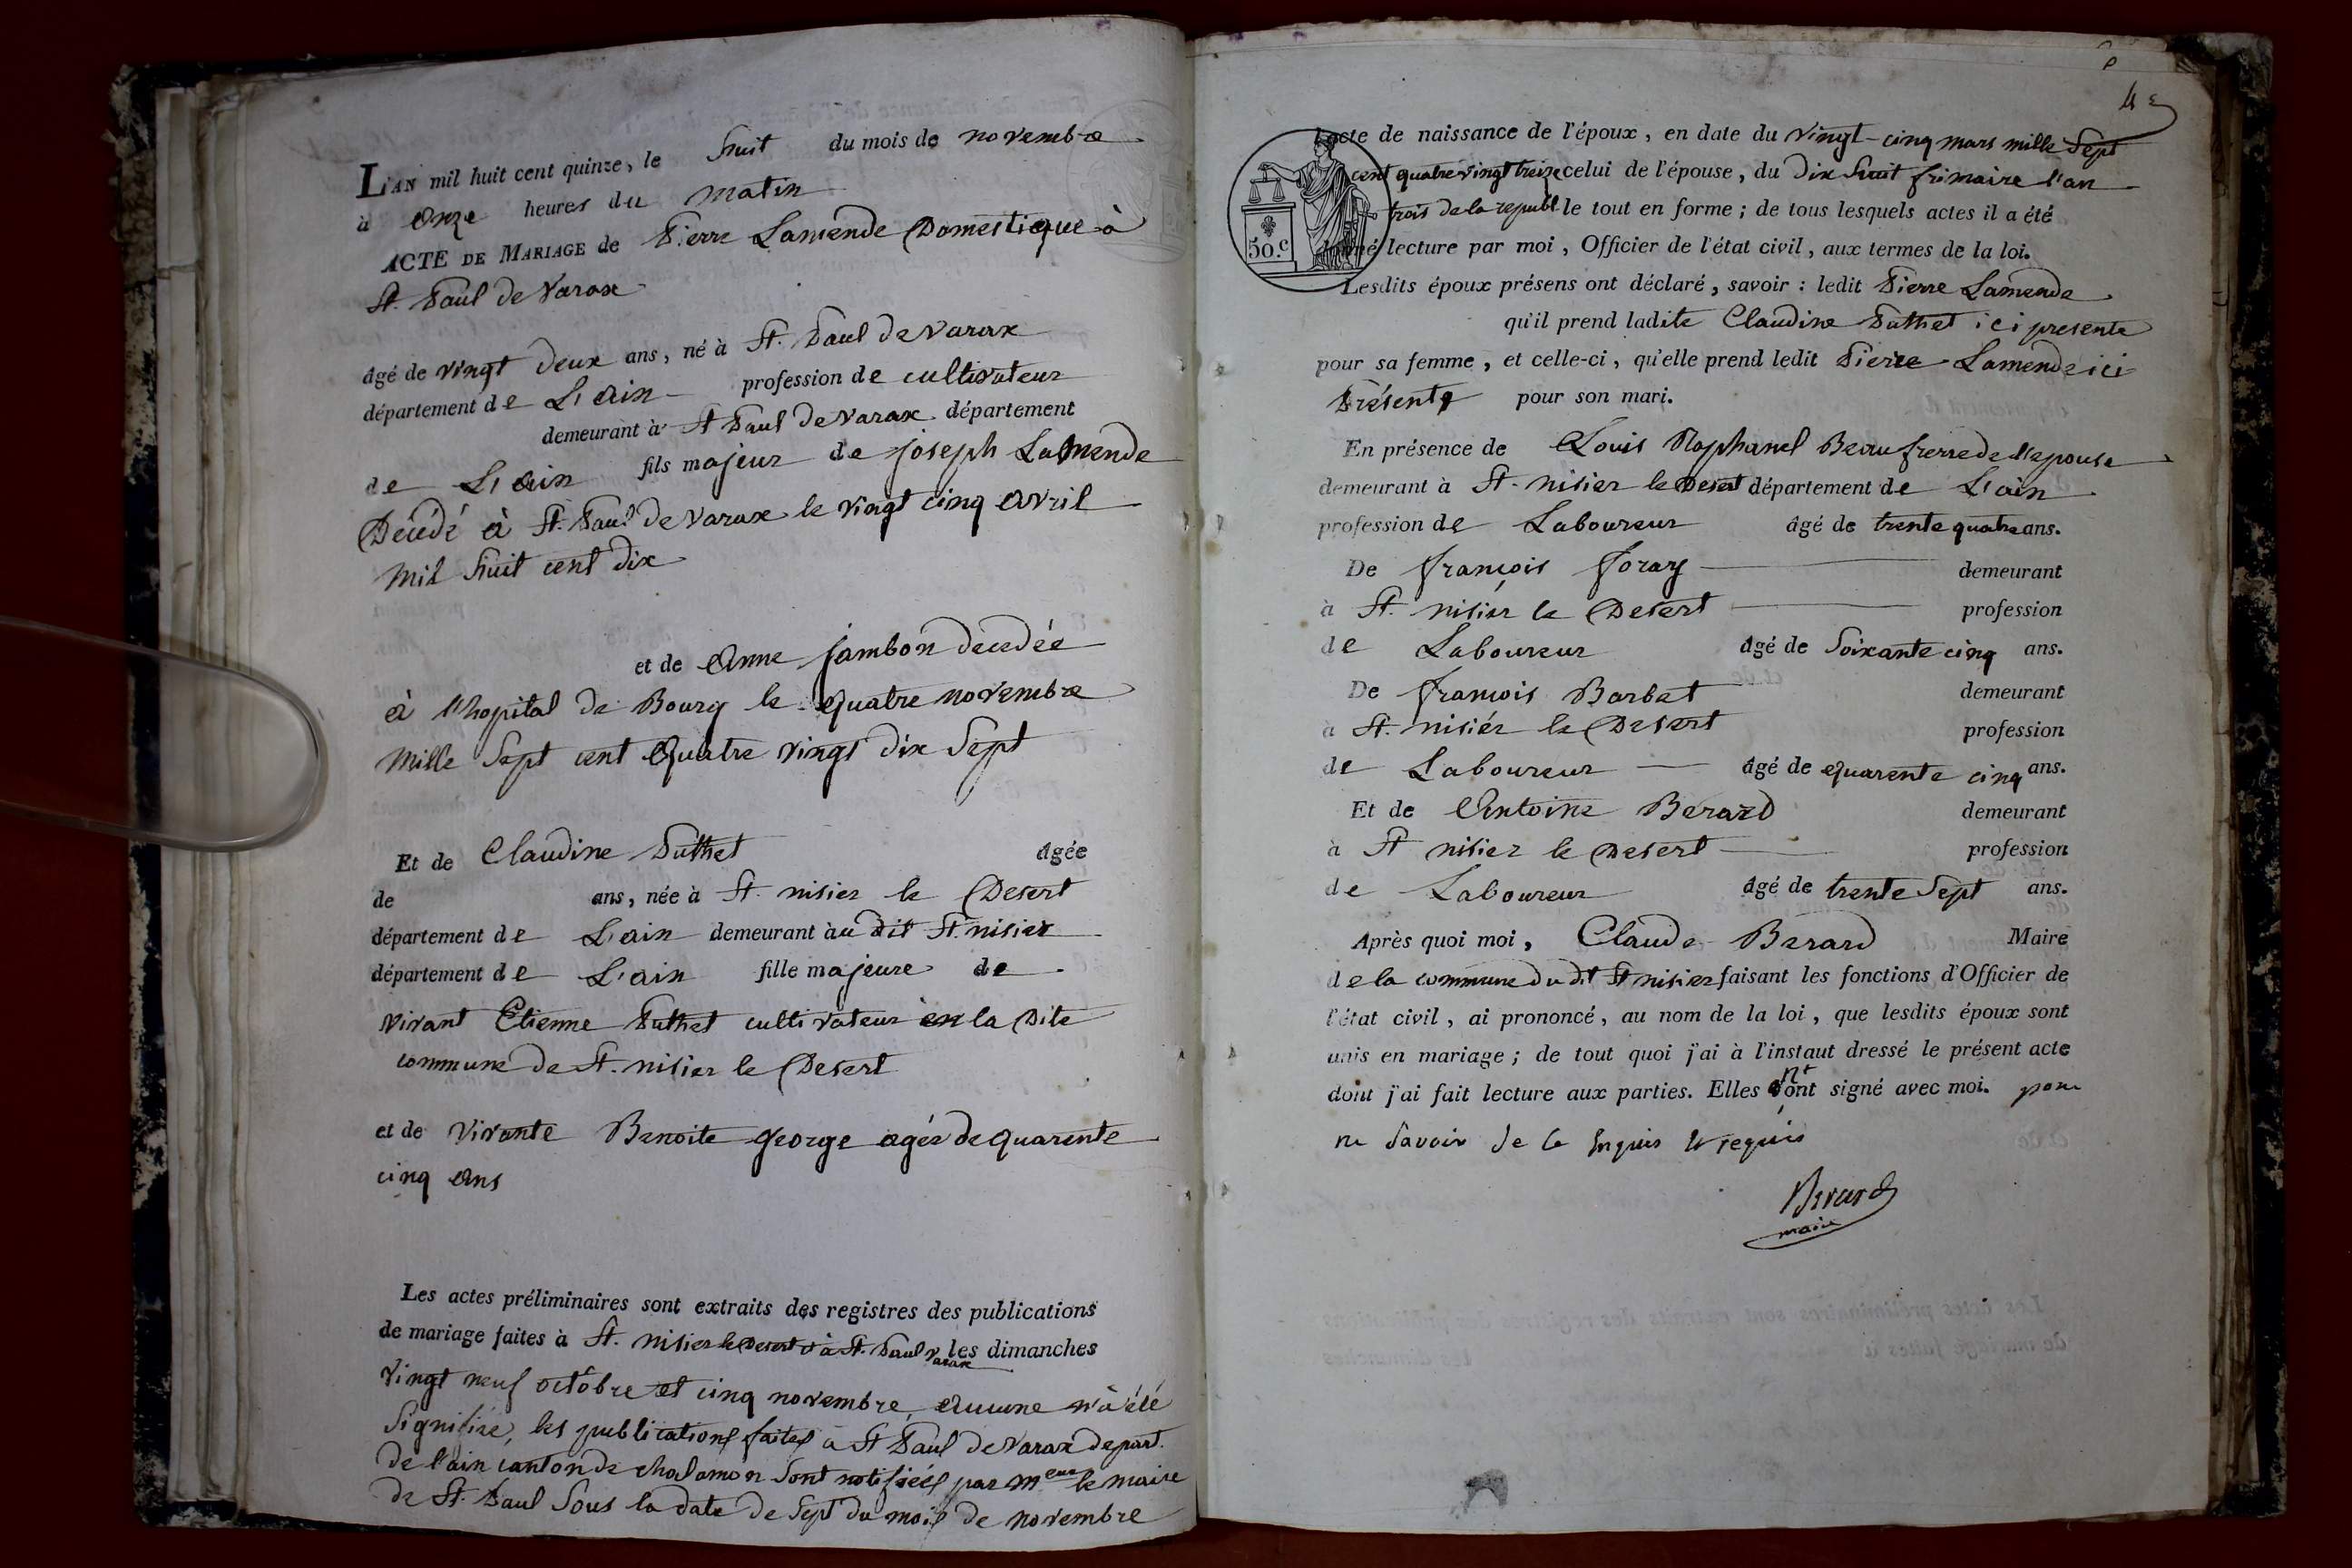 L'AN mil huit cent quinze, le huit du mois de novembre
à onze heures du matin
ACTE DE MARIAGE de Pierre Lamende Domestique à
St. Paul de Varax
âgé de vingt deux ans, né à St. Paul de Varax
département de L'ain profession de cultivateur
demeurant à St Paul de Varax département
de L'ain fils majeur de joseph Lamende
Décédé à St. Paul de Varax le vingt cinq avril
mil huit cent dix
et de Anne jambon decedée
à l'hopital de Bourg le quatre novembre
mille sept cent quatre vingt dix sept
Et de Claudine Puthet agée
de ans, née à St. nisier le Desert
département de L'ain demeurant au dit St. nisier
département de L'ain fille majeure de
vivant Etienne Puthet cultivateur en la Dite
commune de St. nisier le Desert
et de vivante Benoite george agée de quarente
cinq ans
Les actes préliminaires sont extraits des registres des publications
de mariage faites à St. nisier le Desert & à St. Paul varax les dimanches
vingt neuf octobre et cinq novembre, aucune n'a été
signifiée, les publications faites à St Paul de Varax depart.
de l'ain canton de chalamon sont notifiées par le maire
de St. Paul sous la date de sept du mois de novembre
4e
L'acte de naissance de l'époux, en date du vingt-cinq mars mille sept
cent quatre vingt treize celui de l'épouse, du dix huit frimaire l'an
trois de la republ. le tout en forme; de tous lesquels actes il a été
donné lecture par moi, Officier de l'état civil, aux termes de la loi.
50.c
Lesdits époux présens ont déclaré, savoir: ledit Pierre Lamende
qu'il prend ladite Claudine Puthet ici presente
pour sa femme, et celle-ci, qu'elle prend ledit Pierre Lamende ici
Présente pour son mari.
En présence de Louis Raphanel Beau frerre de l'epouse
demeurant à St. nisier le Desert département de L'ain
profession de Laboureur âgé de trente quatre ans.
De françois foray demeurant
à St. nisier le Desert profession
de Laboureur âgé de soixante cinq ans.
De françois Barbet demeurant
à St. nisiér le Desert profession
de Laboureur âgé de quarente cinq ans.
Et de Antoine Berard demeurant
à St nisier le Desert profession
de Laboureur âgé de trente sept ans.
Après quoi moi, Claude Berard Maire
de la commune du dit St nisier faisant les fonctions d'Officier de
l'état civil, ai prononcé, au nom de la loi, que lesdits époux sont
unis en mariage; de tout quoi j'ai à l'instant dressé le présent acte
dont j'ai fait lecture aux parties. Elles n'ont signé avec moi. pour
ne savoir de ce enquis et requis
Berard
maire